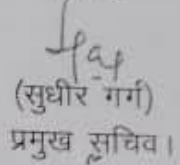 (सुधीर गर्ग)
प्रमुख सचिव।